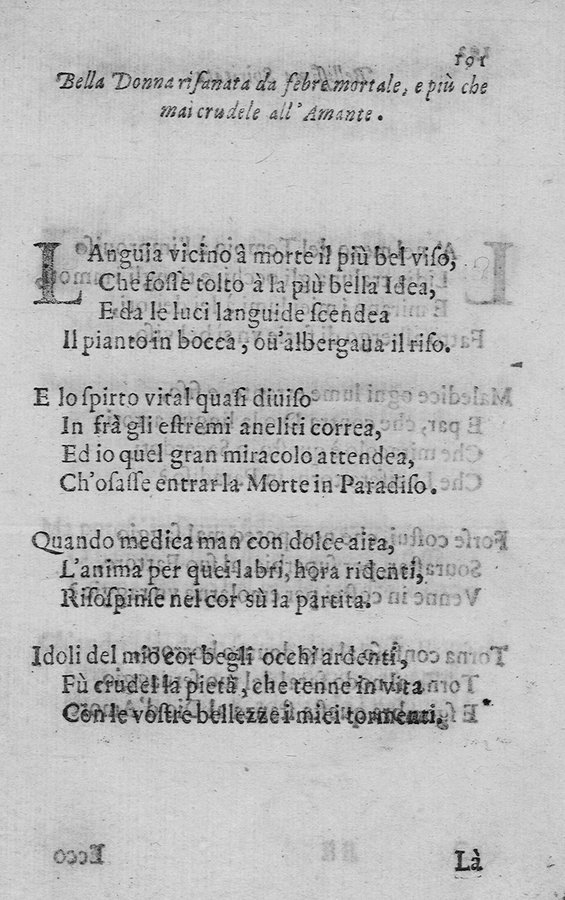 191
Bella Donna risanata da febre mortale, e più che
mai crudele all'Amante.
LAnguia vicino à morte il più bel viso,
Che fosse tolto à la più bella Idea,
E da le luci languide scendea
Il pianto in bocca, ou'albergaua il riso.
E lo spirto vital quasi diuiso
In frà gli estremi aneliti correa,
Ed io quel gran miracolo attendea,
Ch'osasse entrar la Morte in Paradiso.
Quando medica man con dolce aita,
L'anima per quei labri, hora ridenti,
Risospinse nel cor sù la partita.
Idoli del mio cor begli occhi ardenti,
Fù crudel la pietà, che tenne in vita
Con le vostre bellezze i miei tormenti.
Là